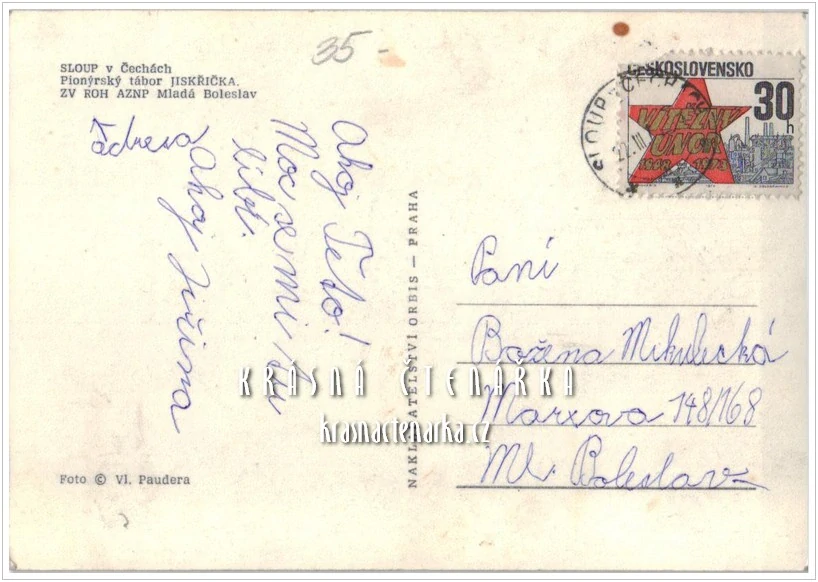 35-
SLOUP v Čechách
Pionýrský tábor JISKŘIČKA.
ZV ROH AZNP Mladá Boleslav
Ahoj Teto!
Moc se mi tu
líbí.
Ahoj Jiřina
Adresa
Foto © Vl. Paudera
NAKLADATELSTVÍ ORBIS — PRAHA
ČESKOSLOVENSKO
30 h
VÍTĚZNÝ
ÚNOR
1948 1973
SLOUP V ČECHÁCH
22. III
Paní
Božena Mikulecká
Marxova 148/168
Ml. Boleslav
KRÁSNÁ ČTENÁRKA
krasnactenarka.cz